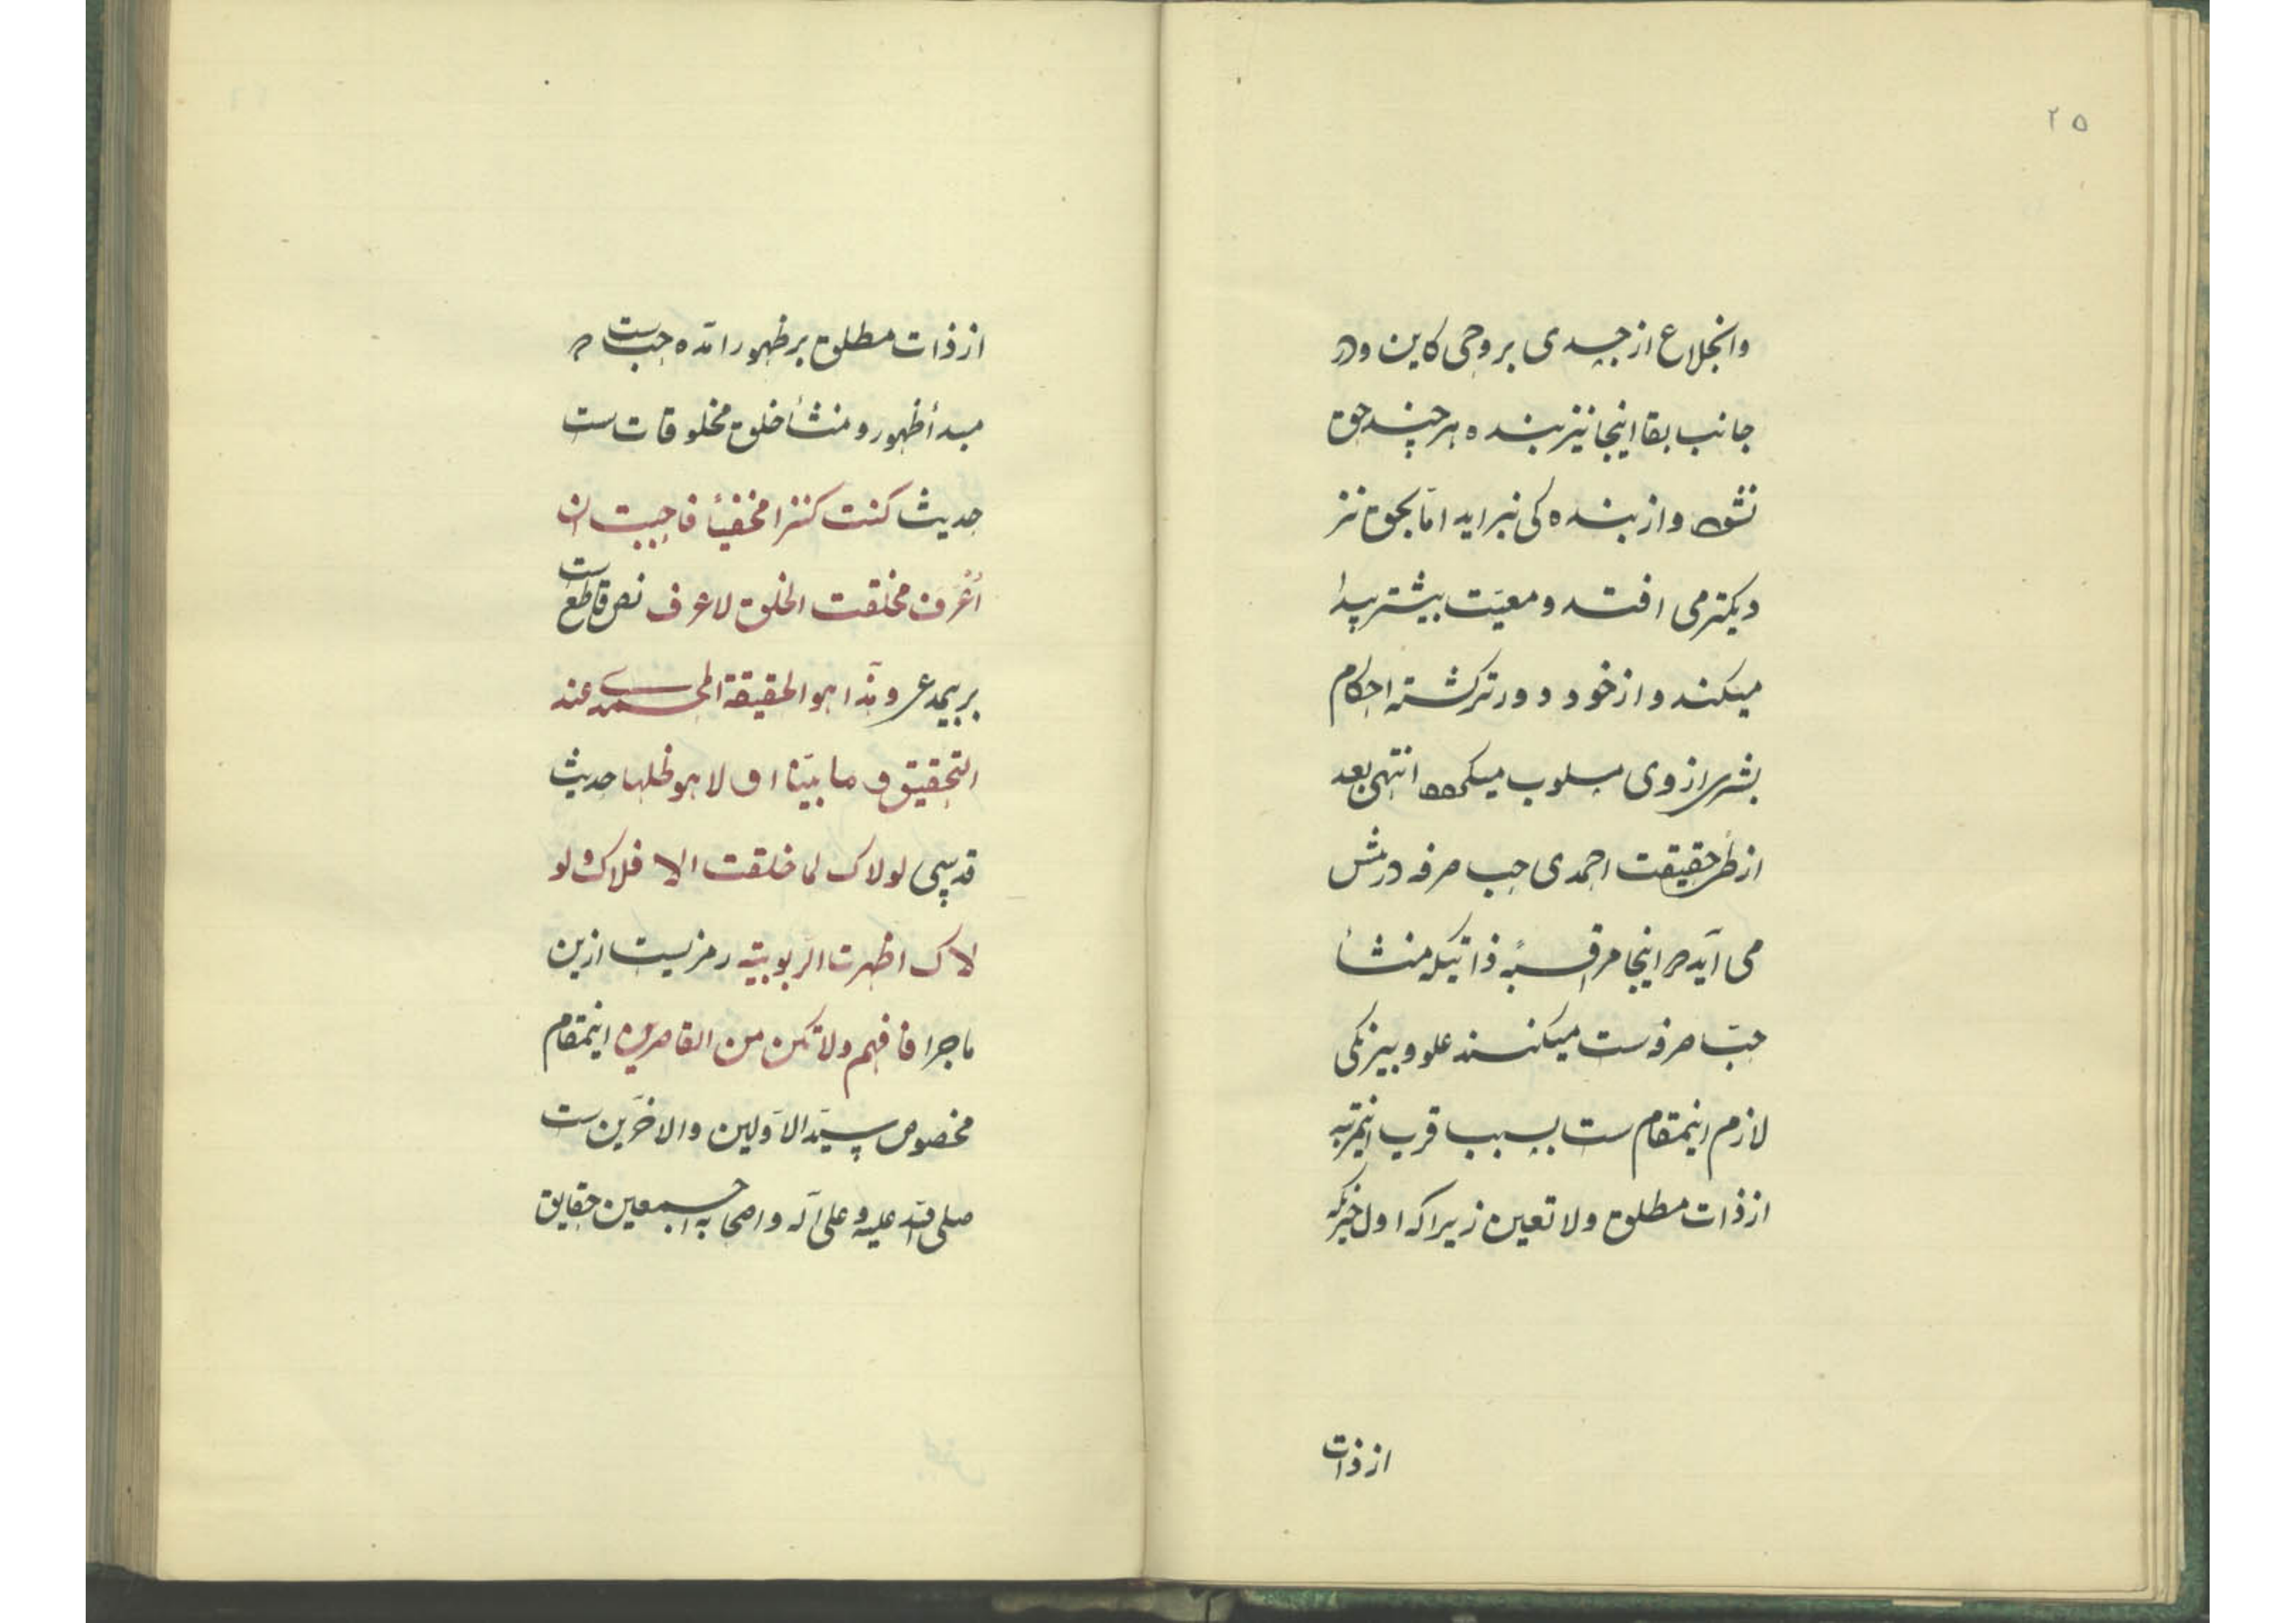 ۲۵
وانخلاع از جسدی بروحی کاین ودر
جانب بقا اینجا نیز بنده هر چند حق
نشود واز بندہ کی نبراید امّا بحق نز
دیکتر می افتد ومعیّت بیشتر پیدا
میکند واز خود دورتر کشته احکام
بشری از وی مسلوب میکردد انتهی بعد
از طی حقیقت احمدی حب صرفه درپیش
می آید در اینجا مراقبهٔ ذاتیکه منشأ
حبّ صرفه ست میکنند علو وبیرنکی
لازم اینمقام ست بسبب قرب اینمرتبه
از ذات مطلق ولا تعین زیرا که اول چیزیکه
از ذات
از ذات مطلق بر ظهور آمده حب ست که
مبدأ ظهور ومنشأ خلق مخلوقات ست
حدیث کنت کنزا مخفیاً فاحببت ان
أعرف فخلقت الخلق لاعرف نص قاطع ست
بریمدعی وهذا هو الحقیقة المحمدیه عند
التحقیق و ما بیّنا اولا هو ظلها حدیث
قدسی لولاک لما خلقت الا فلاک و لو
لاک اظهرت الرّبوبیّة رمزیست ازین
ماجرا فافهم ولا تکن من القاصرین اینمقام
مخصوص سیّد الاوّلین والاخرین ست
صلی الله علیه وعلی آله واصحابه اجمعین حقایق